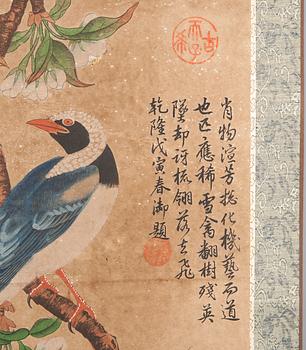 肖物渲芳捴化機藝而道
也匹應稀雪禽翻樹殘英
墜却訝梳翎落去飛
乾隆戊寅春御題
古希天子